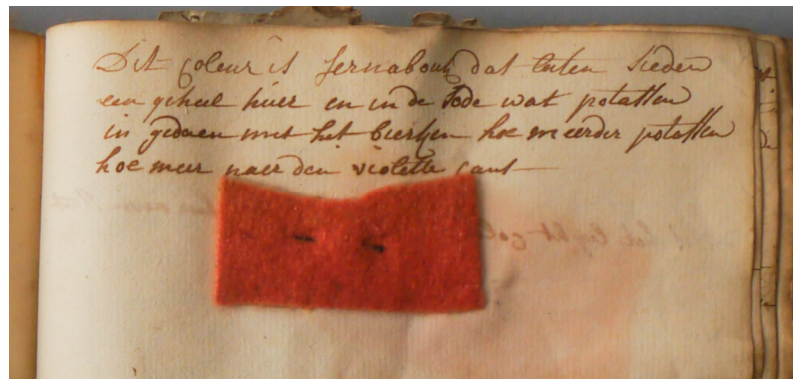 Dit coleur is fernabouq dat laten sieden
een geheel huer en in de sode wat potassen
in gedaen met het bierssen hoe meerder potassen
hoe meer naer den violette cant